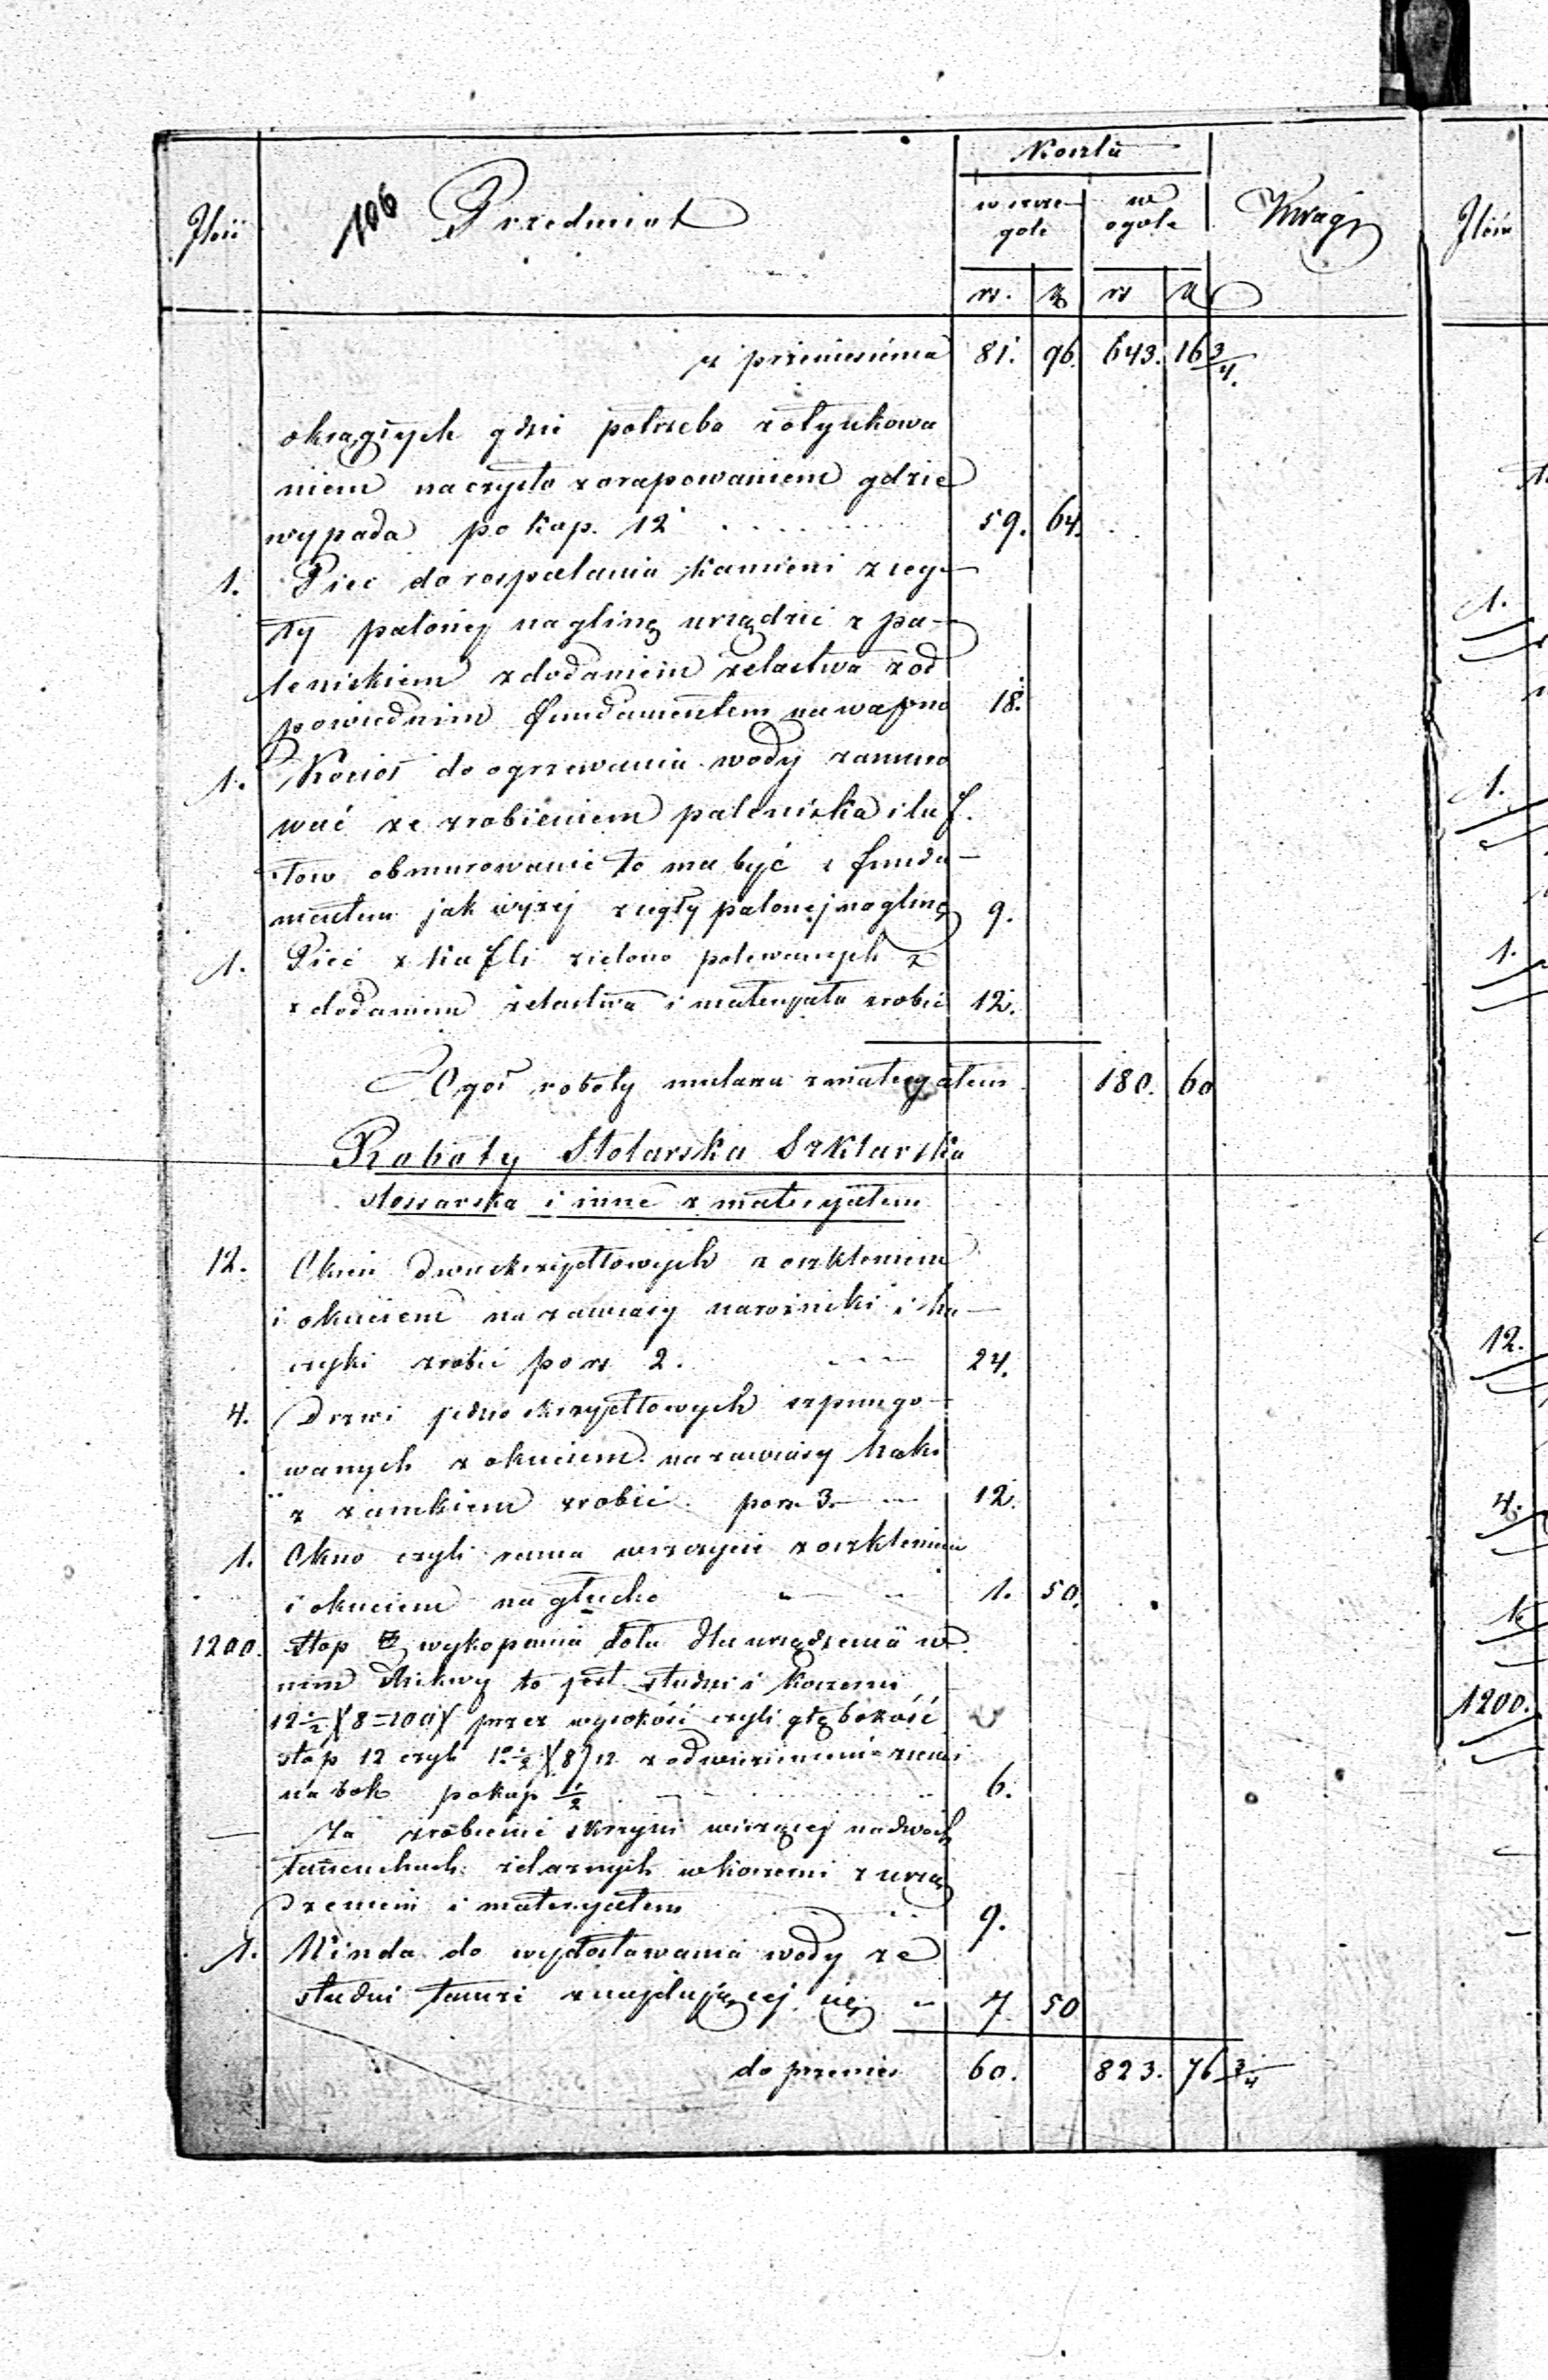 Kosztu
Ilość 106 Przedmiot w szcze w Uwagi
gole ogóle
rs. k rs k
z przeniesienia 81. 96. 643. 16 3/4.
okrągłych gdzie potrzeba z otynkowa
niem na czysto z orapowaniem gdzie
wypada po kop. 12 59. 64.
1. Piec do rospalania kamieni z ceg-
ły palonéj na glinę urządzić z pa-
leniskiem z dodaniem żelastwa z od
powiednim fundamentem na wapno 18.
1. Kocioł do ogrzewania wody zamuro
wać ze zrobieniem paleniska i luf.
tow obmurowanie to ma być z funda-
mentem jak wyżej z cegły palonej na glinę 9.
1. Piec z kafli zielono polewanych z
z dodaniem żelastwa i materyału zrobić 12.
Ogół roboty mularza z materyałem 180. 60
Roboty Stolarska Szklarska
slossarska i inne z materyałem
12. Okien dwuskrzydłowych z oszkleniem
i okuciem na zawiasy narożniki i ha-
czyki zrobić po rs 2. 24.
4. Drzwi jedno skrzydłowych szpungo-
wanych z okuciem na zawiasy haki
z zamkiem zrobić po rs 3. 12.
1. Okno czyli rama w szczycie z oszkleniem
i okuciem na głucho 1. 50.
1200. stop wykopania dołu dla urządzenia w
nim Mikwy to jest studni i
12 1/2 X 8 = 100 X przez wysokość czyli głębokość
stóp 12 czyli 12 1/2 X 8) 12 z odwiezieniem ziemi
na bok po kop 1/2 6.
— Za zrobienie skrzyni wiszącej na dwóch
łańcuchach żelaznych w z urzą
dzeniem i materyałem 9.
1. Winda do wydostawania wody ze
studni tamże znajdującej się 7. 50
do przenies 60. 823. 76 3/4
Ilość
1.
1.
1.
12.
4.
1.
1200.